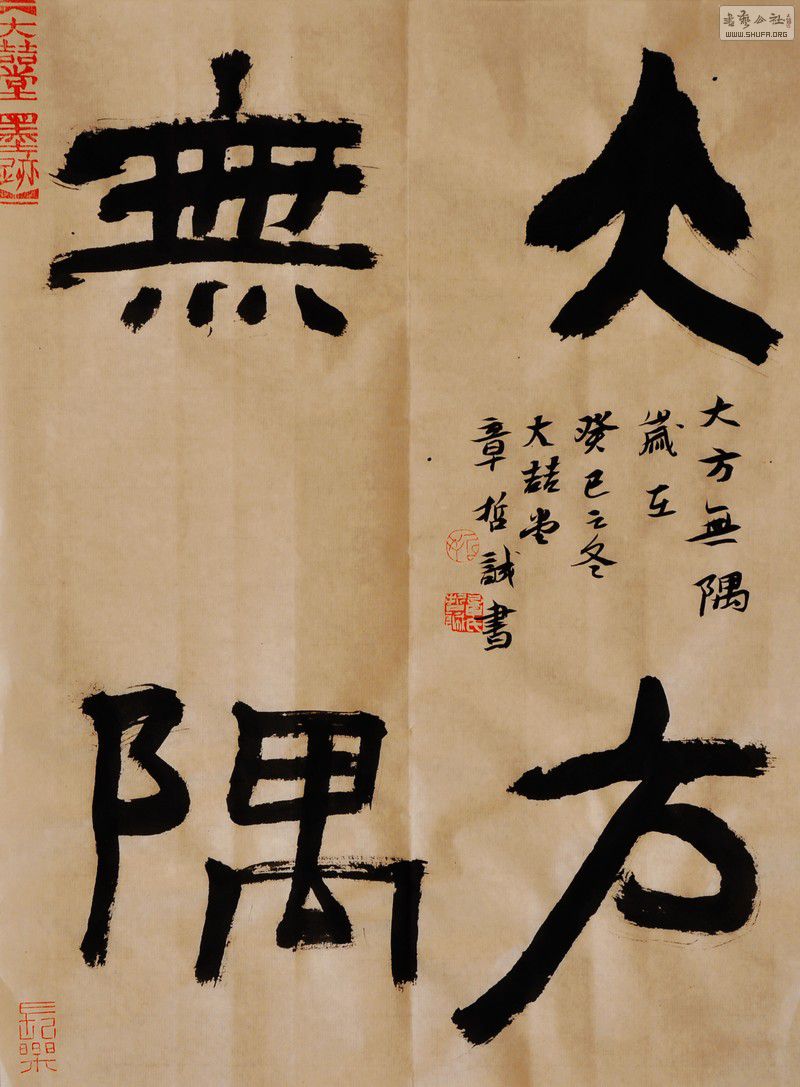 大方
無隅
大方無隅
歲在
癸巳之冬
大喆堂
章哲誠書
大喆堂
墨跡
長樂
書藝公社
WWW.SHUFA.ORG